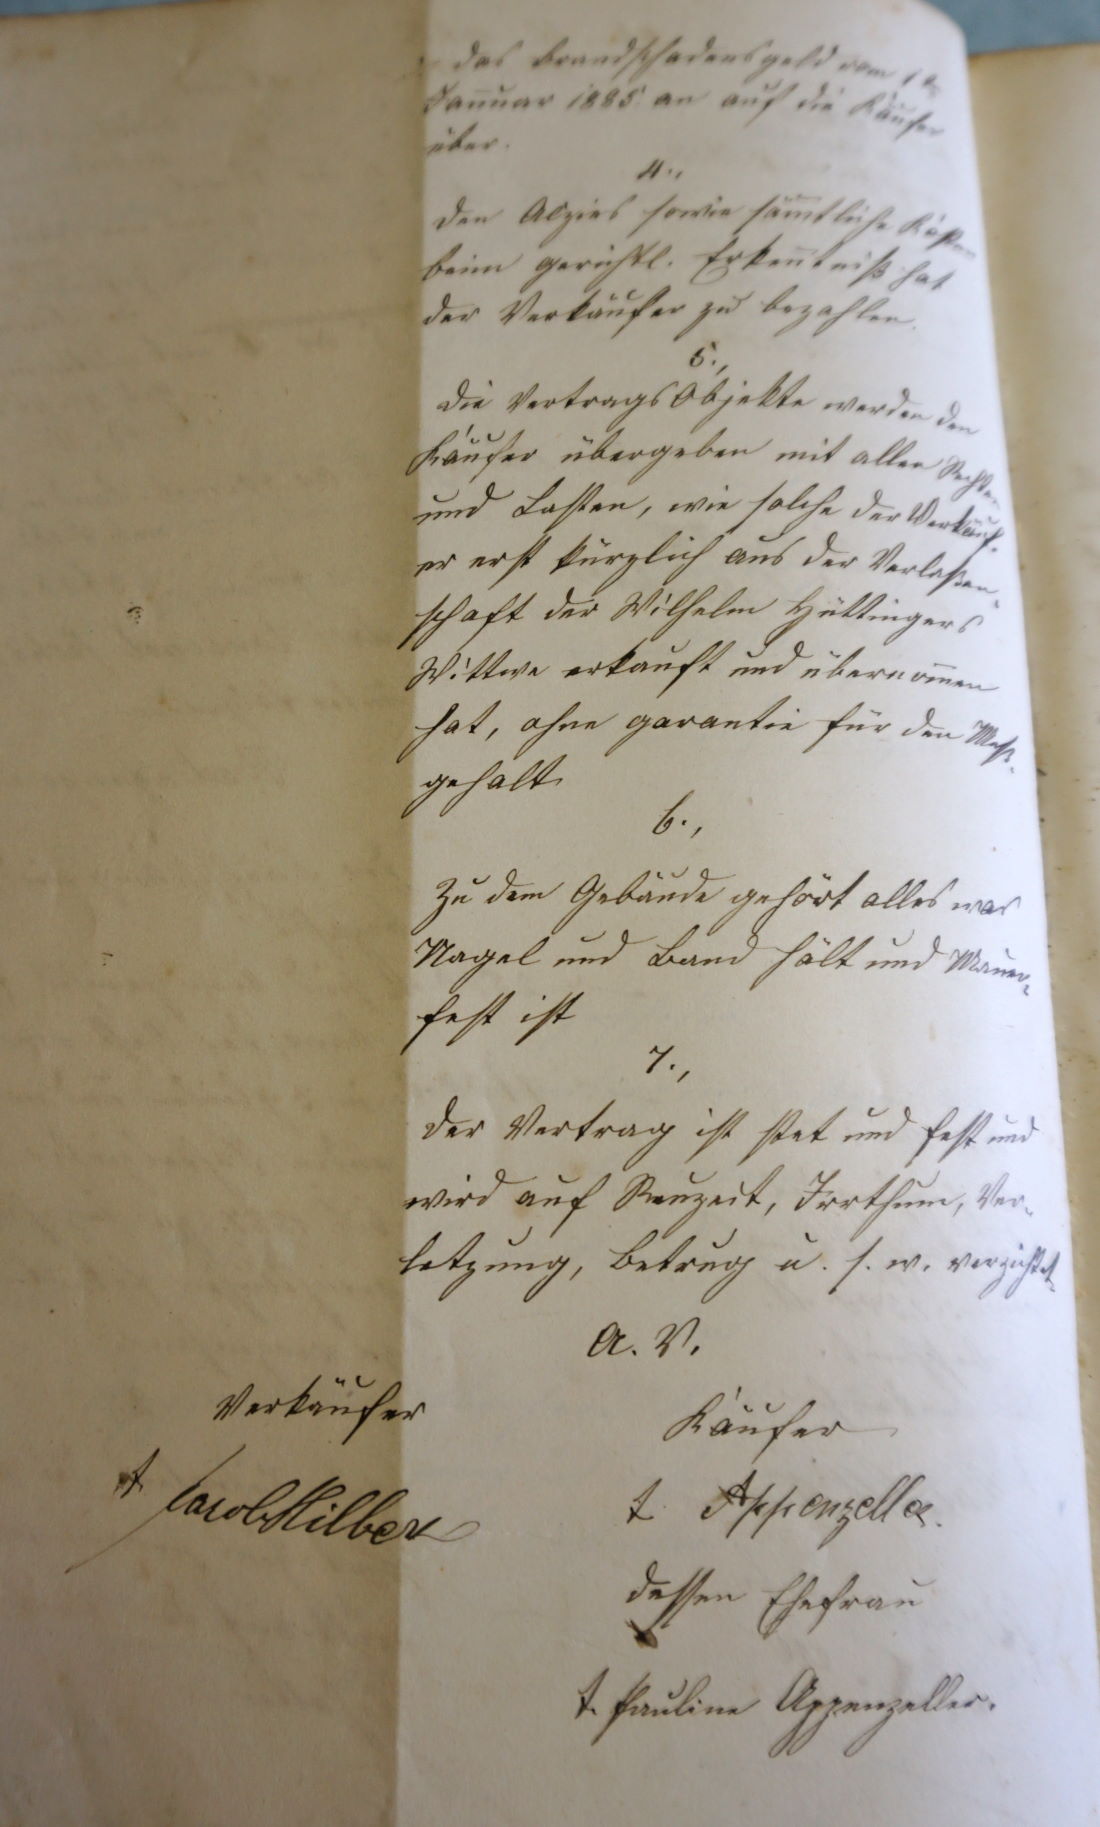 das Brandschadensgeld vom 1ten
Januar 1885 an auf die Käufer
über.
4.,
Den Alzies sowie sämtliche Kosten
beim gerichtl. Erkentniß hat
der Verkäufer zu bezahlen.
5.,
Die Vertrags Objekte werden den
Käufer übergeben mit allen Rechten
und Lasten, wie solche der Verkäuf-
er erst kürzlich aus der Verlaßen-
schaft der Wilhelm Hüttingers
Wittwe erkauft und übernomen
hat, ohne garantie für den Meß-
gehalt.
6.,
Zu dem Gebäude gehört alles was
Nagel und Band hält und Mauer-
fest ist
7.,
Der Vertrag ist stet und fest und
wird auf Reuzeit, Irrthum, Ver-
letzung, Betrug u. s. w. verzichtet.
A. V.
Verkäufer
Käufer
t Jacob Hilber
t. Appenzeller.
dessen Ehefrau
t. Pauline Appenzeller.